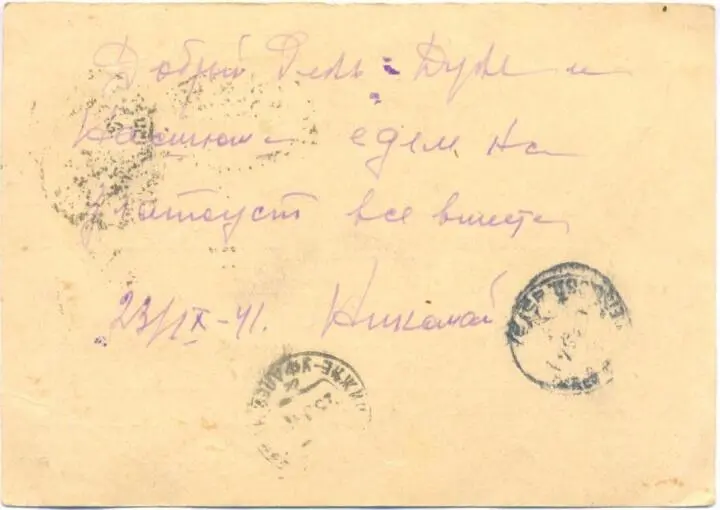 Добрый День. Дуся и
Настюша едем на
Златоуст все вместе
23/IX-41. Николай
НИЖНЕ-УФАЛЕЙ